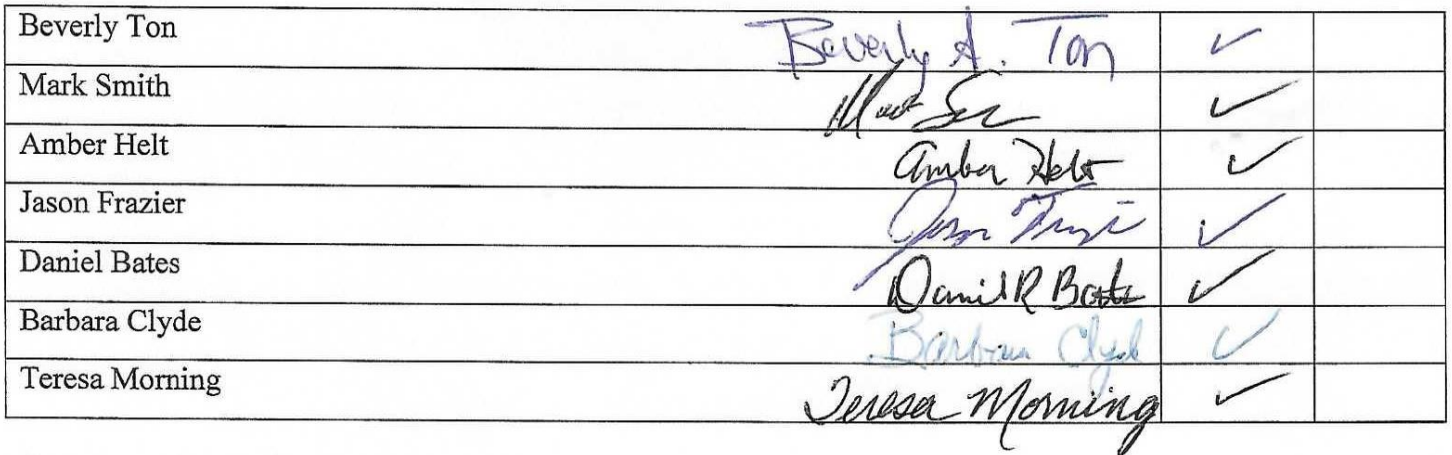 Beverly Ton Beverly A. Ton ✓
Mark Smith ✓
Amber Helt Amber Helt ✓
Jason Frazier Jason ✓
Daniel Bates Daniel R Bates ✓
Barbara Clyde Barbara Clyde ✓
Teresa Morning Teresa Morning ✓